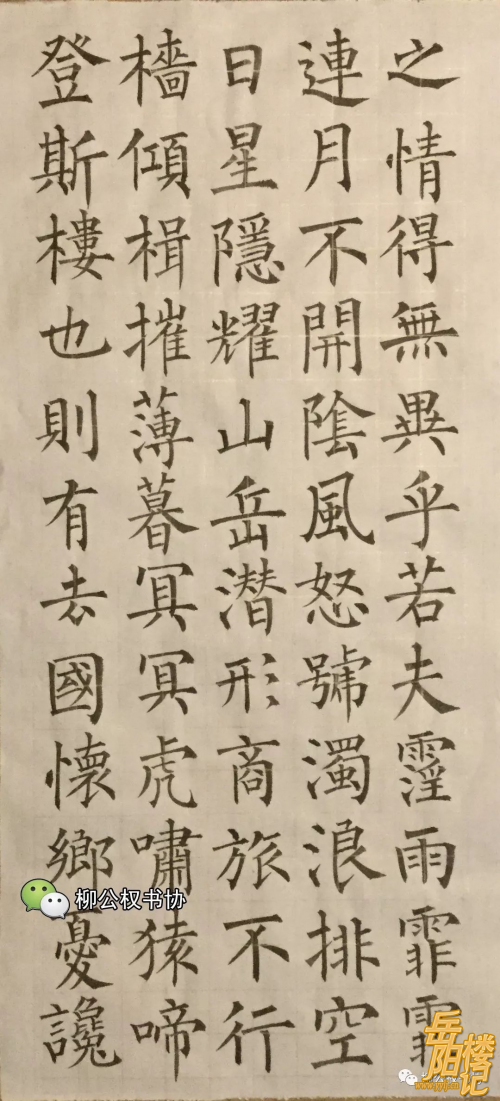 之情得無異乎若夫霪雨霏霏
連月不開陰風怒號濁浪排空
日星隱耀山岳潛形商旅不行
檣傾楫摧薄暮冥冥虎嘯猿啼
登斯樓也則有去國懷鄉憂讒
柳公权书协
岳阳楼记